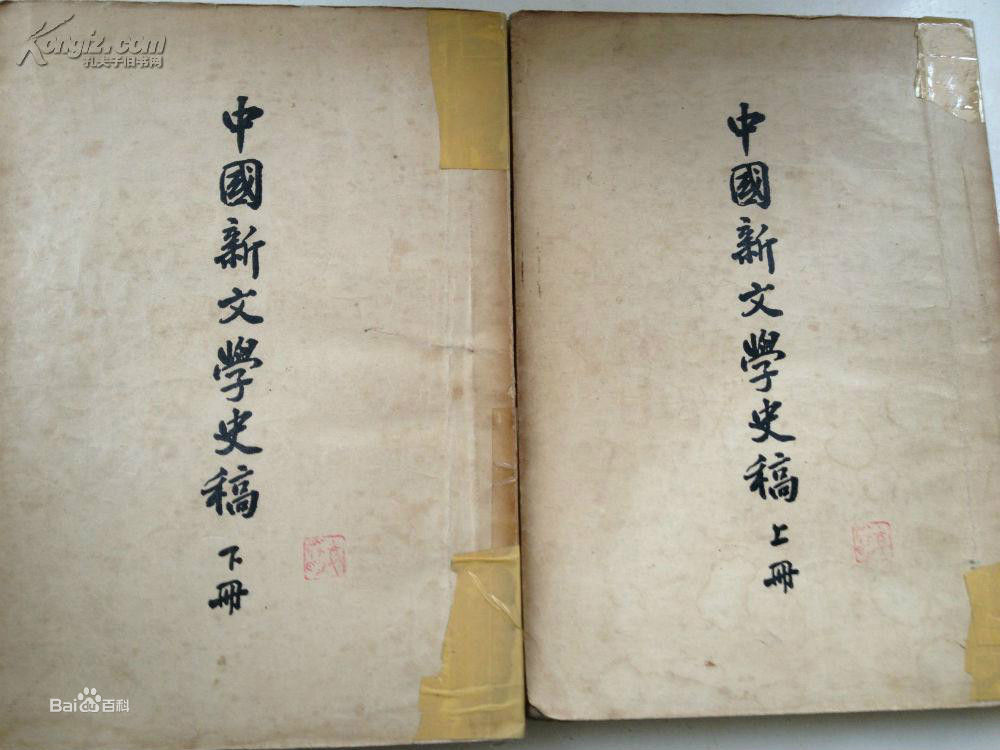 Kongfz.com
孔夫子旧书网
中國新文學史稿 下冊
中國新文學史稿 上冊
Bai du 百科